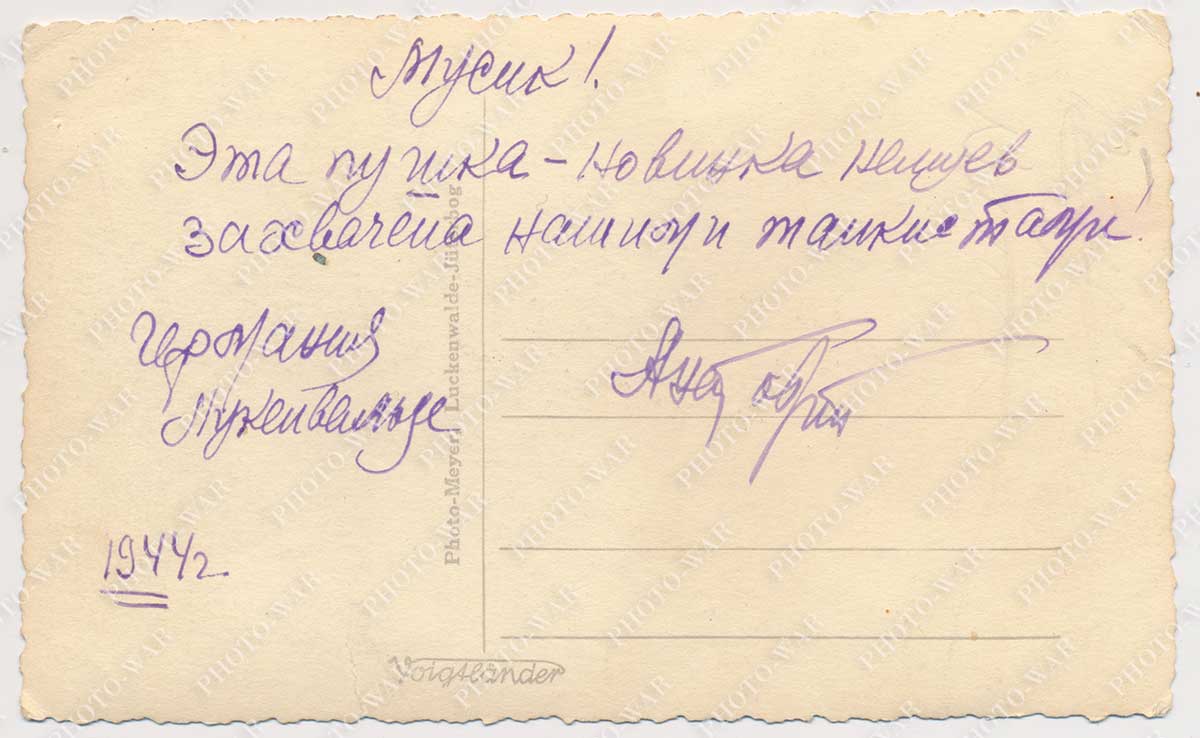 Мусик!
Эта пушка – новинка немцев
захвачена нашими танкистами!
Германия
Лукенвальде
1944г
Photo-Meyer, Luckenwalde-Jüterbog
Voigtländer
PHOTO-WAR